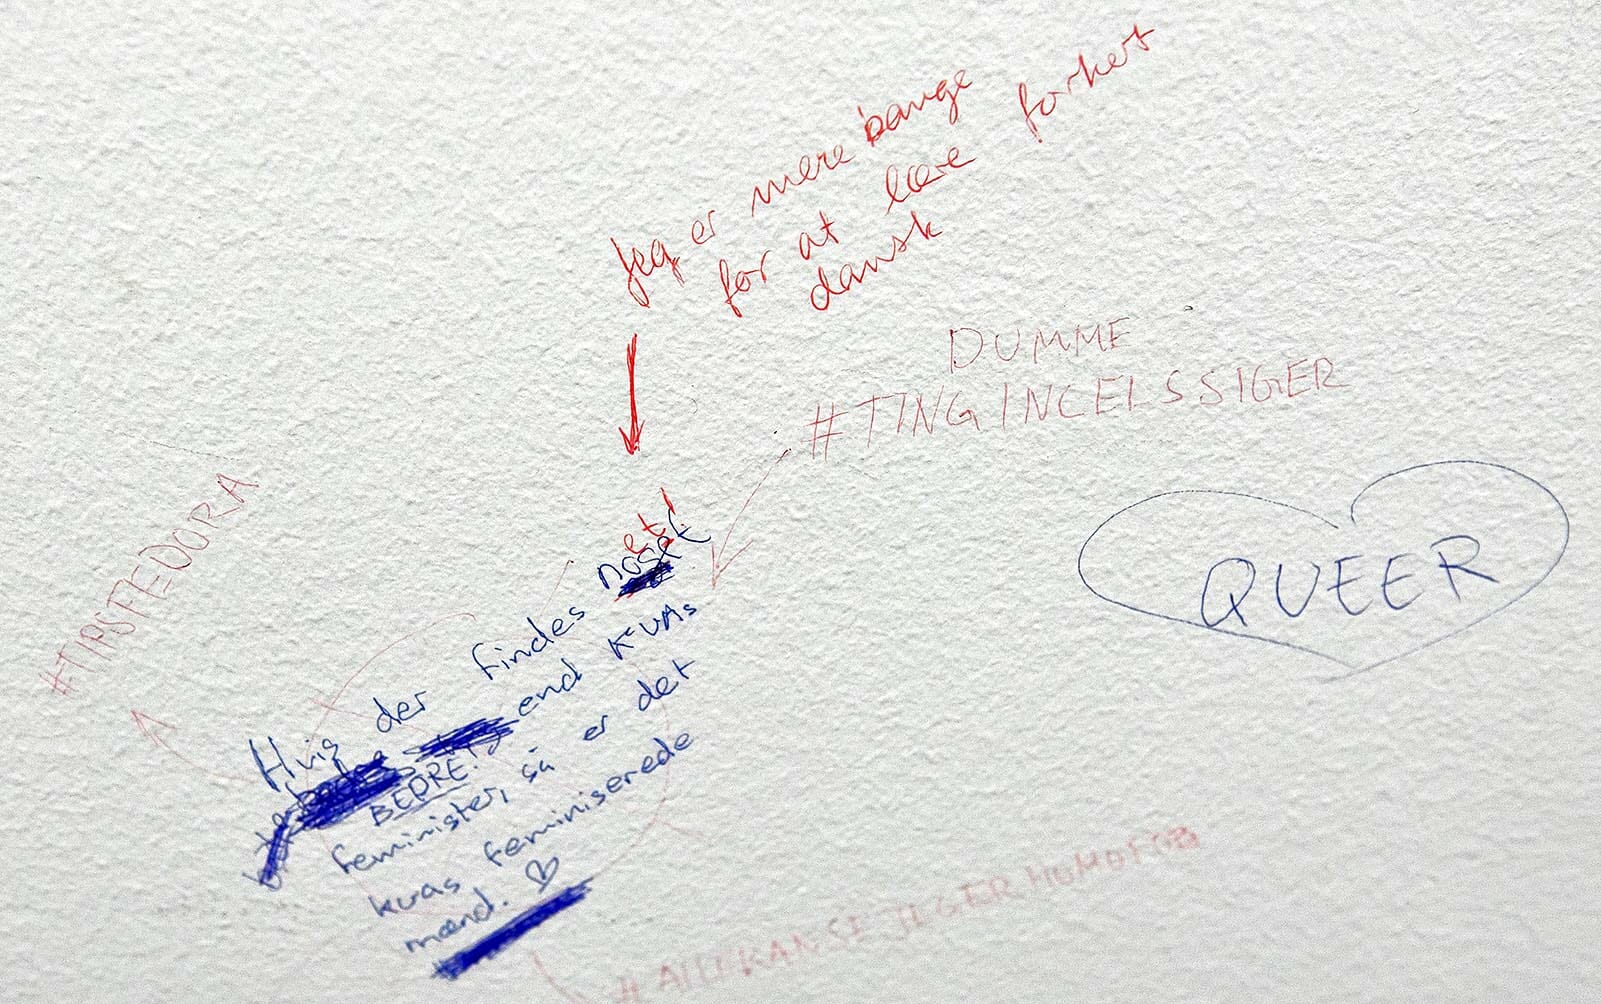 Jeg er mere bange
for at lære forkert
dansk
DUMME
#TINGINCELSSIGER
#TIPSFEDORA
QUEER
et!
Hvis der findes noget
BEDRE! end KVAs
feminister, så er det
kvas feminiserede
mænd. ♡
#ALLEKANSEJEGERHOMOFOB